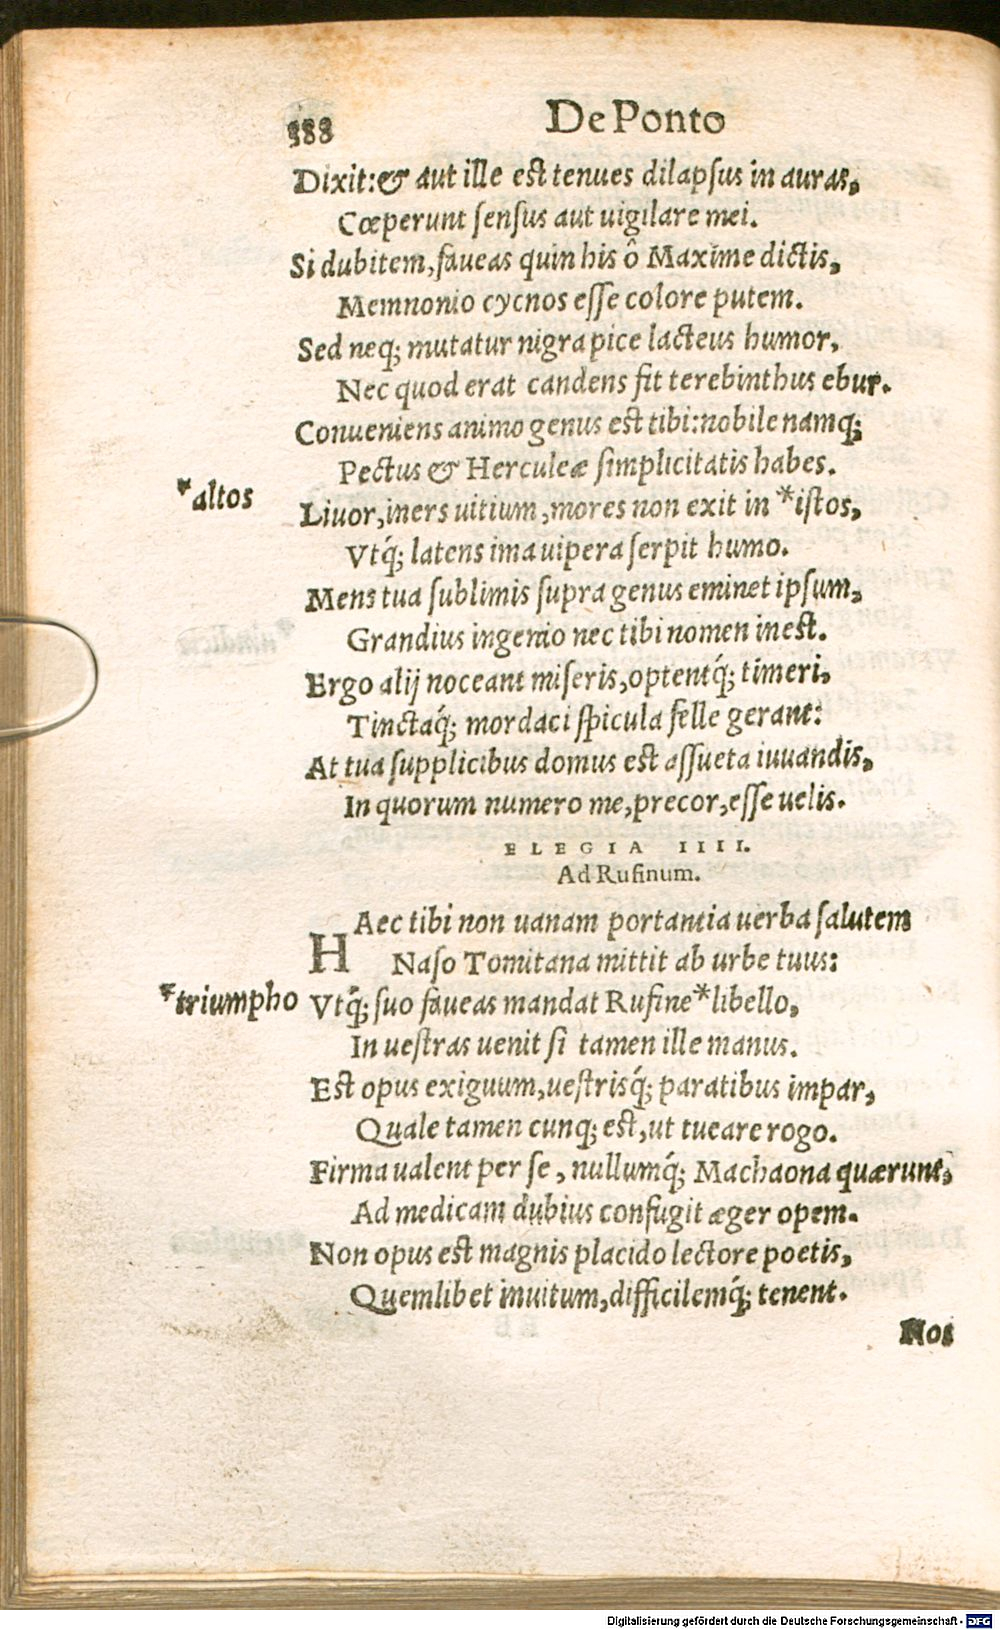 388 De Ponto
Dixit: & aut ille est tenues dilapsus in auras,
Cœperunt sensus aut uigilare mei.
Si dubitem, faueas quin his ô Maxime dictis,
Memnonio cycnos esse colore putem.
Sed neq; mutatur nigra pice lacteus humor,
Nec quod erat candens fit terebinthus ebur.
Conueniens animo genus est tibi: nobile namq;
Pectus & Herculeæ simplicitatis habes.
*altos
Liuor, iners uitium, mores non exit in *istos,
Vtq́; latens ima uipera serpit humo.
Mens tua sublimis supra genus eminet ipsum,
Grandius ingenio nec tibi nomen inest.
Ergo alij noceant miseris, optentq́; timeri,
Tinctaq́; mordaci spicula felle gerant:
At tua supplicibus domus est assueta iuuandis,
In quorum numero me, precor, esse uelis.
ELEGIA IIII.
Ad Rufinum.
HAec tibi non uanam portantia uerba salutem
Naso Tomitana mittit ab urbe tuus:
*triumpho
Vtq́; suo faueas mandat Rufine *libello,
In uestras uenit si tamen ille manus.
Est opus exiguum, uestrisq́; paratibus impar,
Quale tamen cunq; est, ut tueare rogo.
Firma ualent per se, nullumq́; Machaona quærunt,
Ad medicam dubius confugit æger opem.
Non opus est magnis placido lectore poetis,
Quemlibet inuitum, difficilemq́; tenent.
Nos
Digitalisierung gefördert durch die Deutsche Forschungsgemeinschaft - DFG